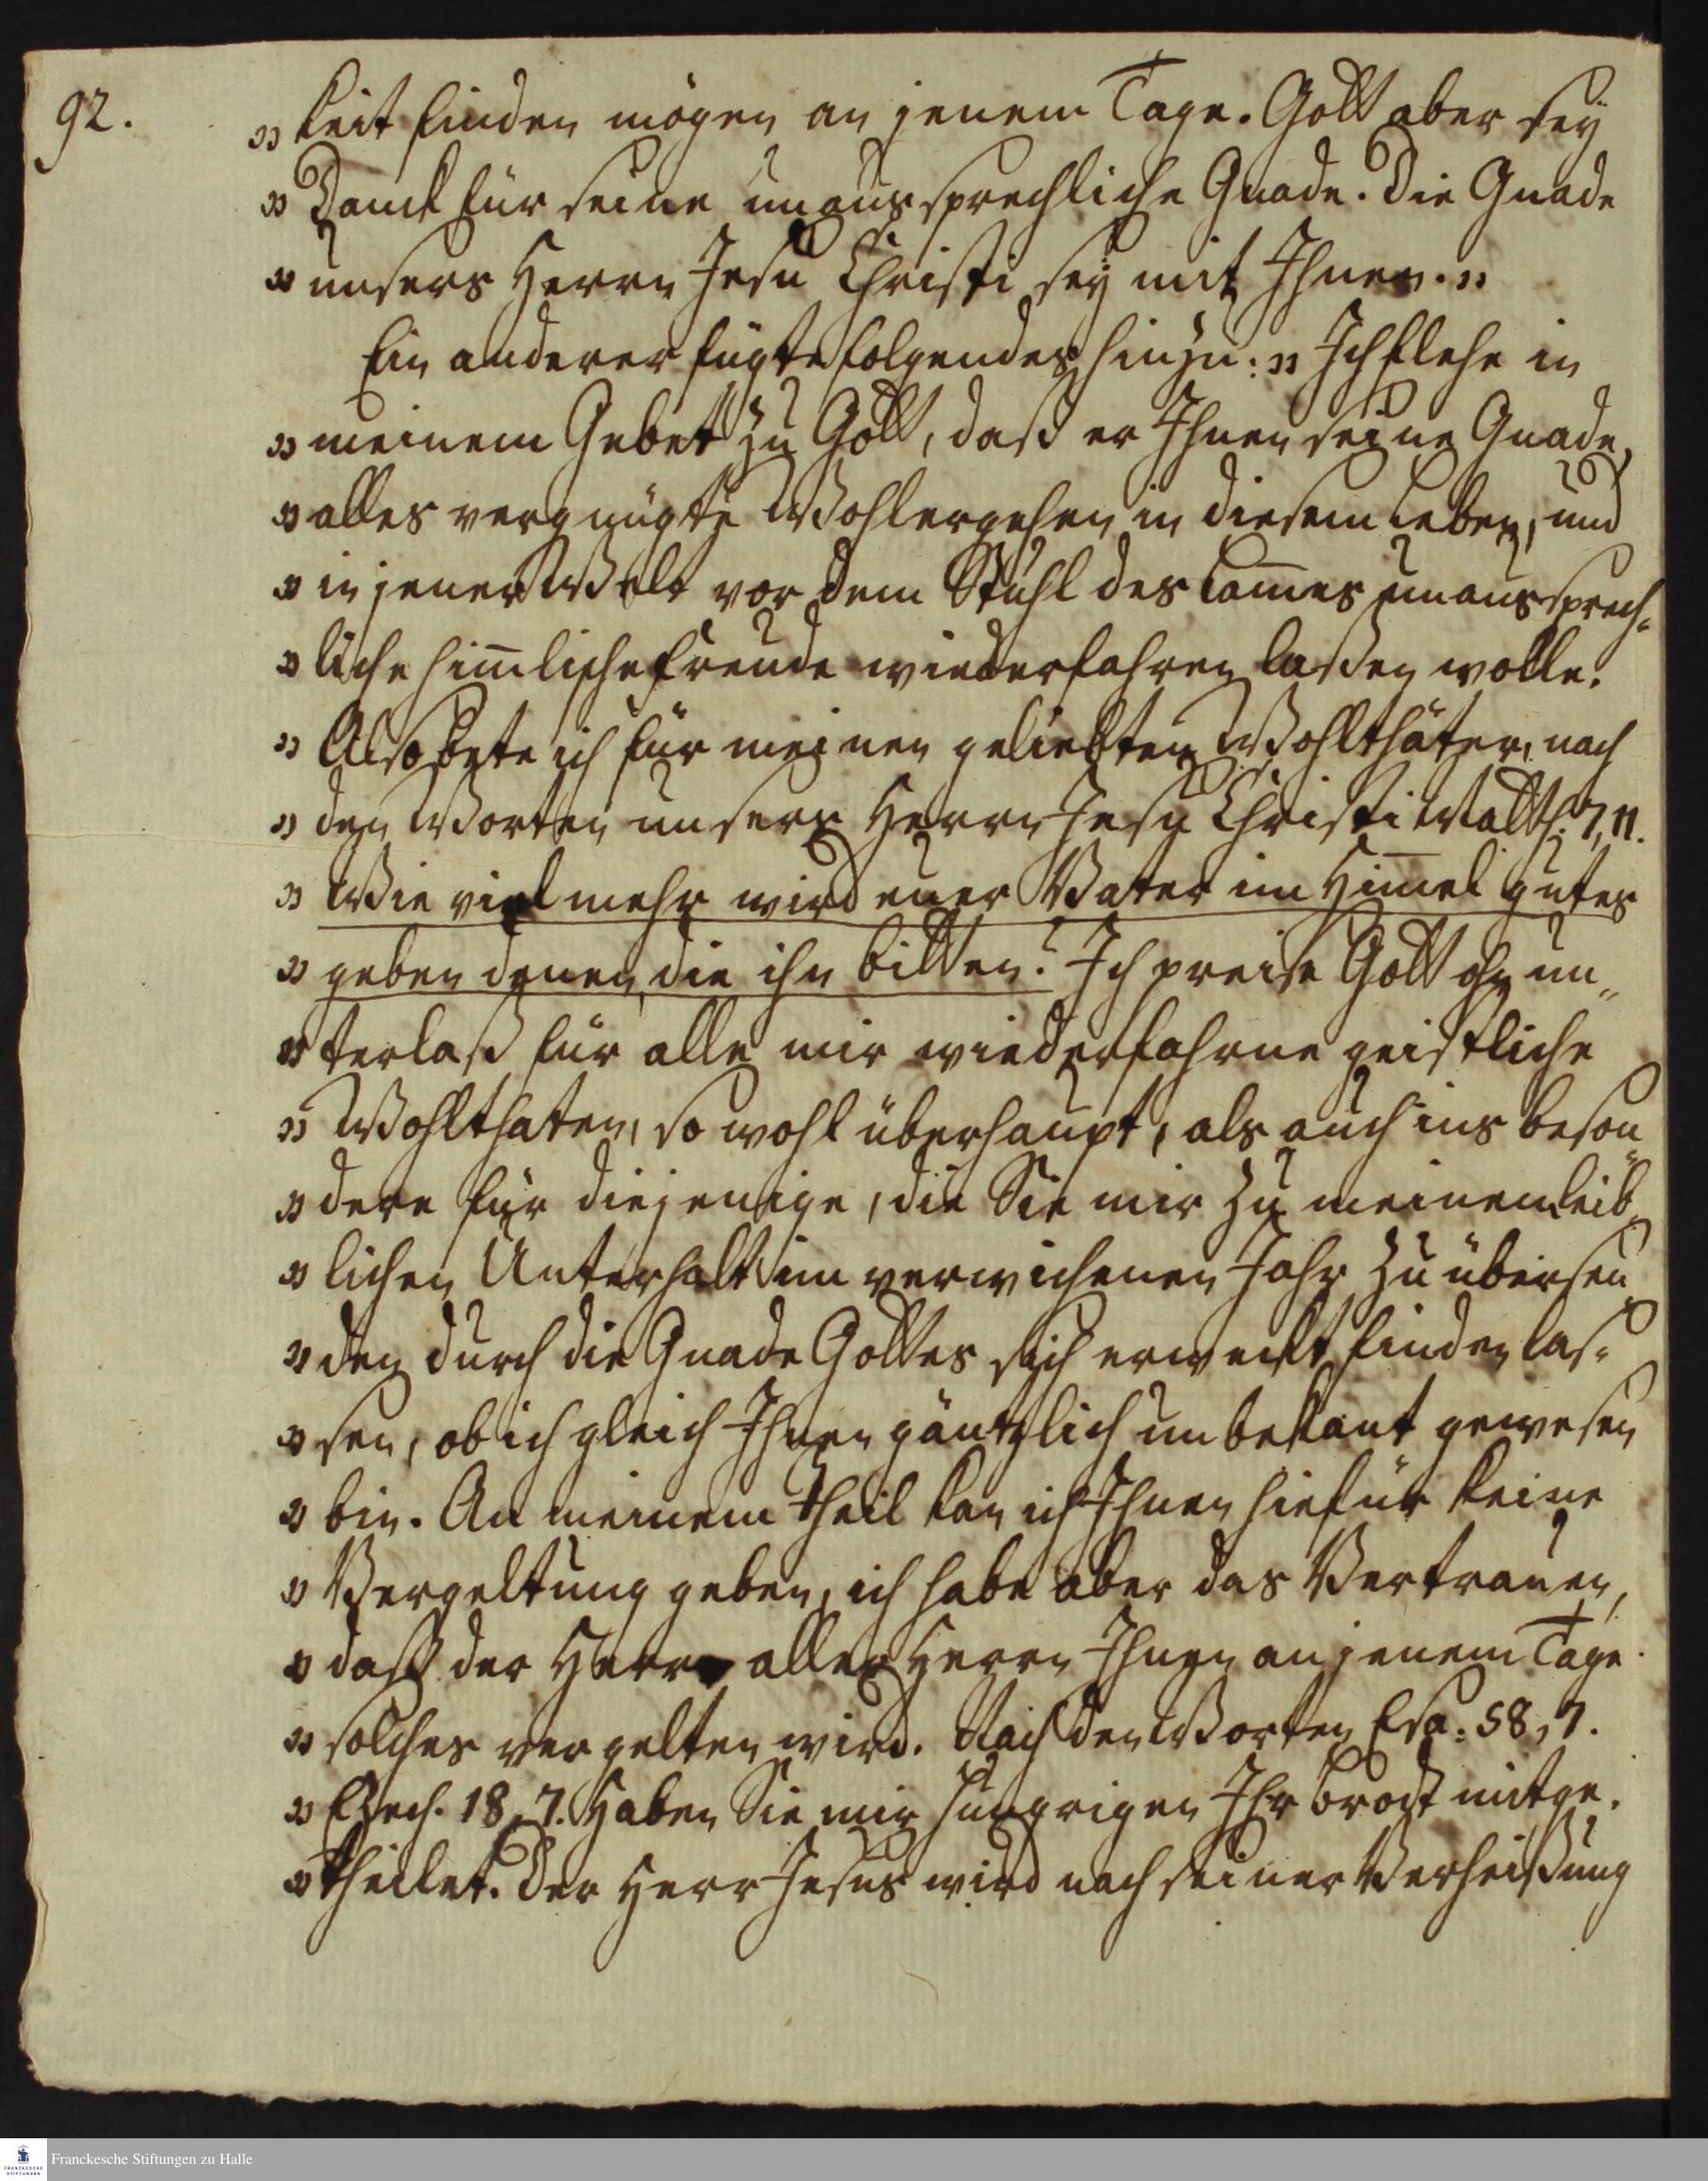 92.
„ keit finden mögen an jenem Tage. Gott aber sey
„ Danck für seine unaussprechliche Gnade. Die Gnade
„ unsers Herrn Jesu Christi sey mit Ihnen. „
Ein anderer fügte folgendes hinzu: „ Ich flehe in
„ meinem Gebet zu Gott, daß er Ihnen seine Gnade,
„ alles vergnügte Wohlergehen in diesem Leben, und
„ in jener Welt vor dem Stuhl des Lam̅es unaussprech-
„ liche him̅lische Freude wiederfahren laßen wolle.
„ Also bete ich für meinen geliebten Wohlthäter, nach
„ den Worten unsers Herrn Jesu Christi Matth. 7, 11.
„ Wie viel mehr wird euer Vater im Him̅el gutes
„ geben denen, die ihn bitten? Ich preise Gott ohn un-
„ terlaß für alle mir wiederfahrne geistliche
„ Wohlthaten, so wohl überhaupt, als auch ins beson-
„ dere für diejenige, die Sie mir zu meinem leib-
„ lichen Unterhalt im verwichenen Jahr zu übersen-
„ den durch die Gnade Gottes sich erweckt finden las-
„ sen, ob ich gleich Ihnen gäntzlich unbekant gewesen
„ bin. An meinem Theil kan ich Ihnen hiefür keine
„ Vergeltung geben, ich habe aber das Vertrauen,
„ daß der Herr aller Herrn Ihnen an jenem Tage
„ solches vergelten wird. Nach den Worten Esa: 58, 7.
„ Ezech. 18, 7. Haben Sie mir hungrigen Ihr brodt mitge-
„ theilet. Der Herr Jesus wird nach seiner Verheißung
FRANCKESCHE STIFTUNGEN
Franckesche Stiftungen zu Halle